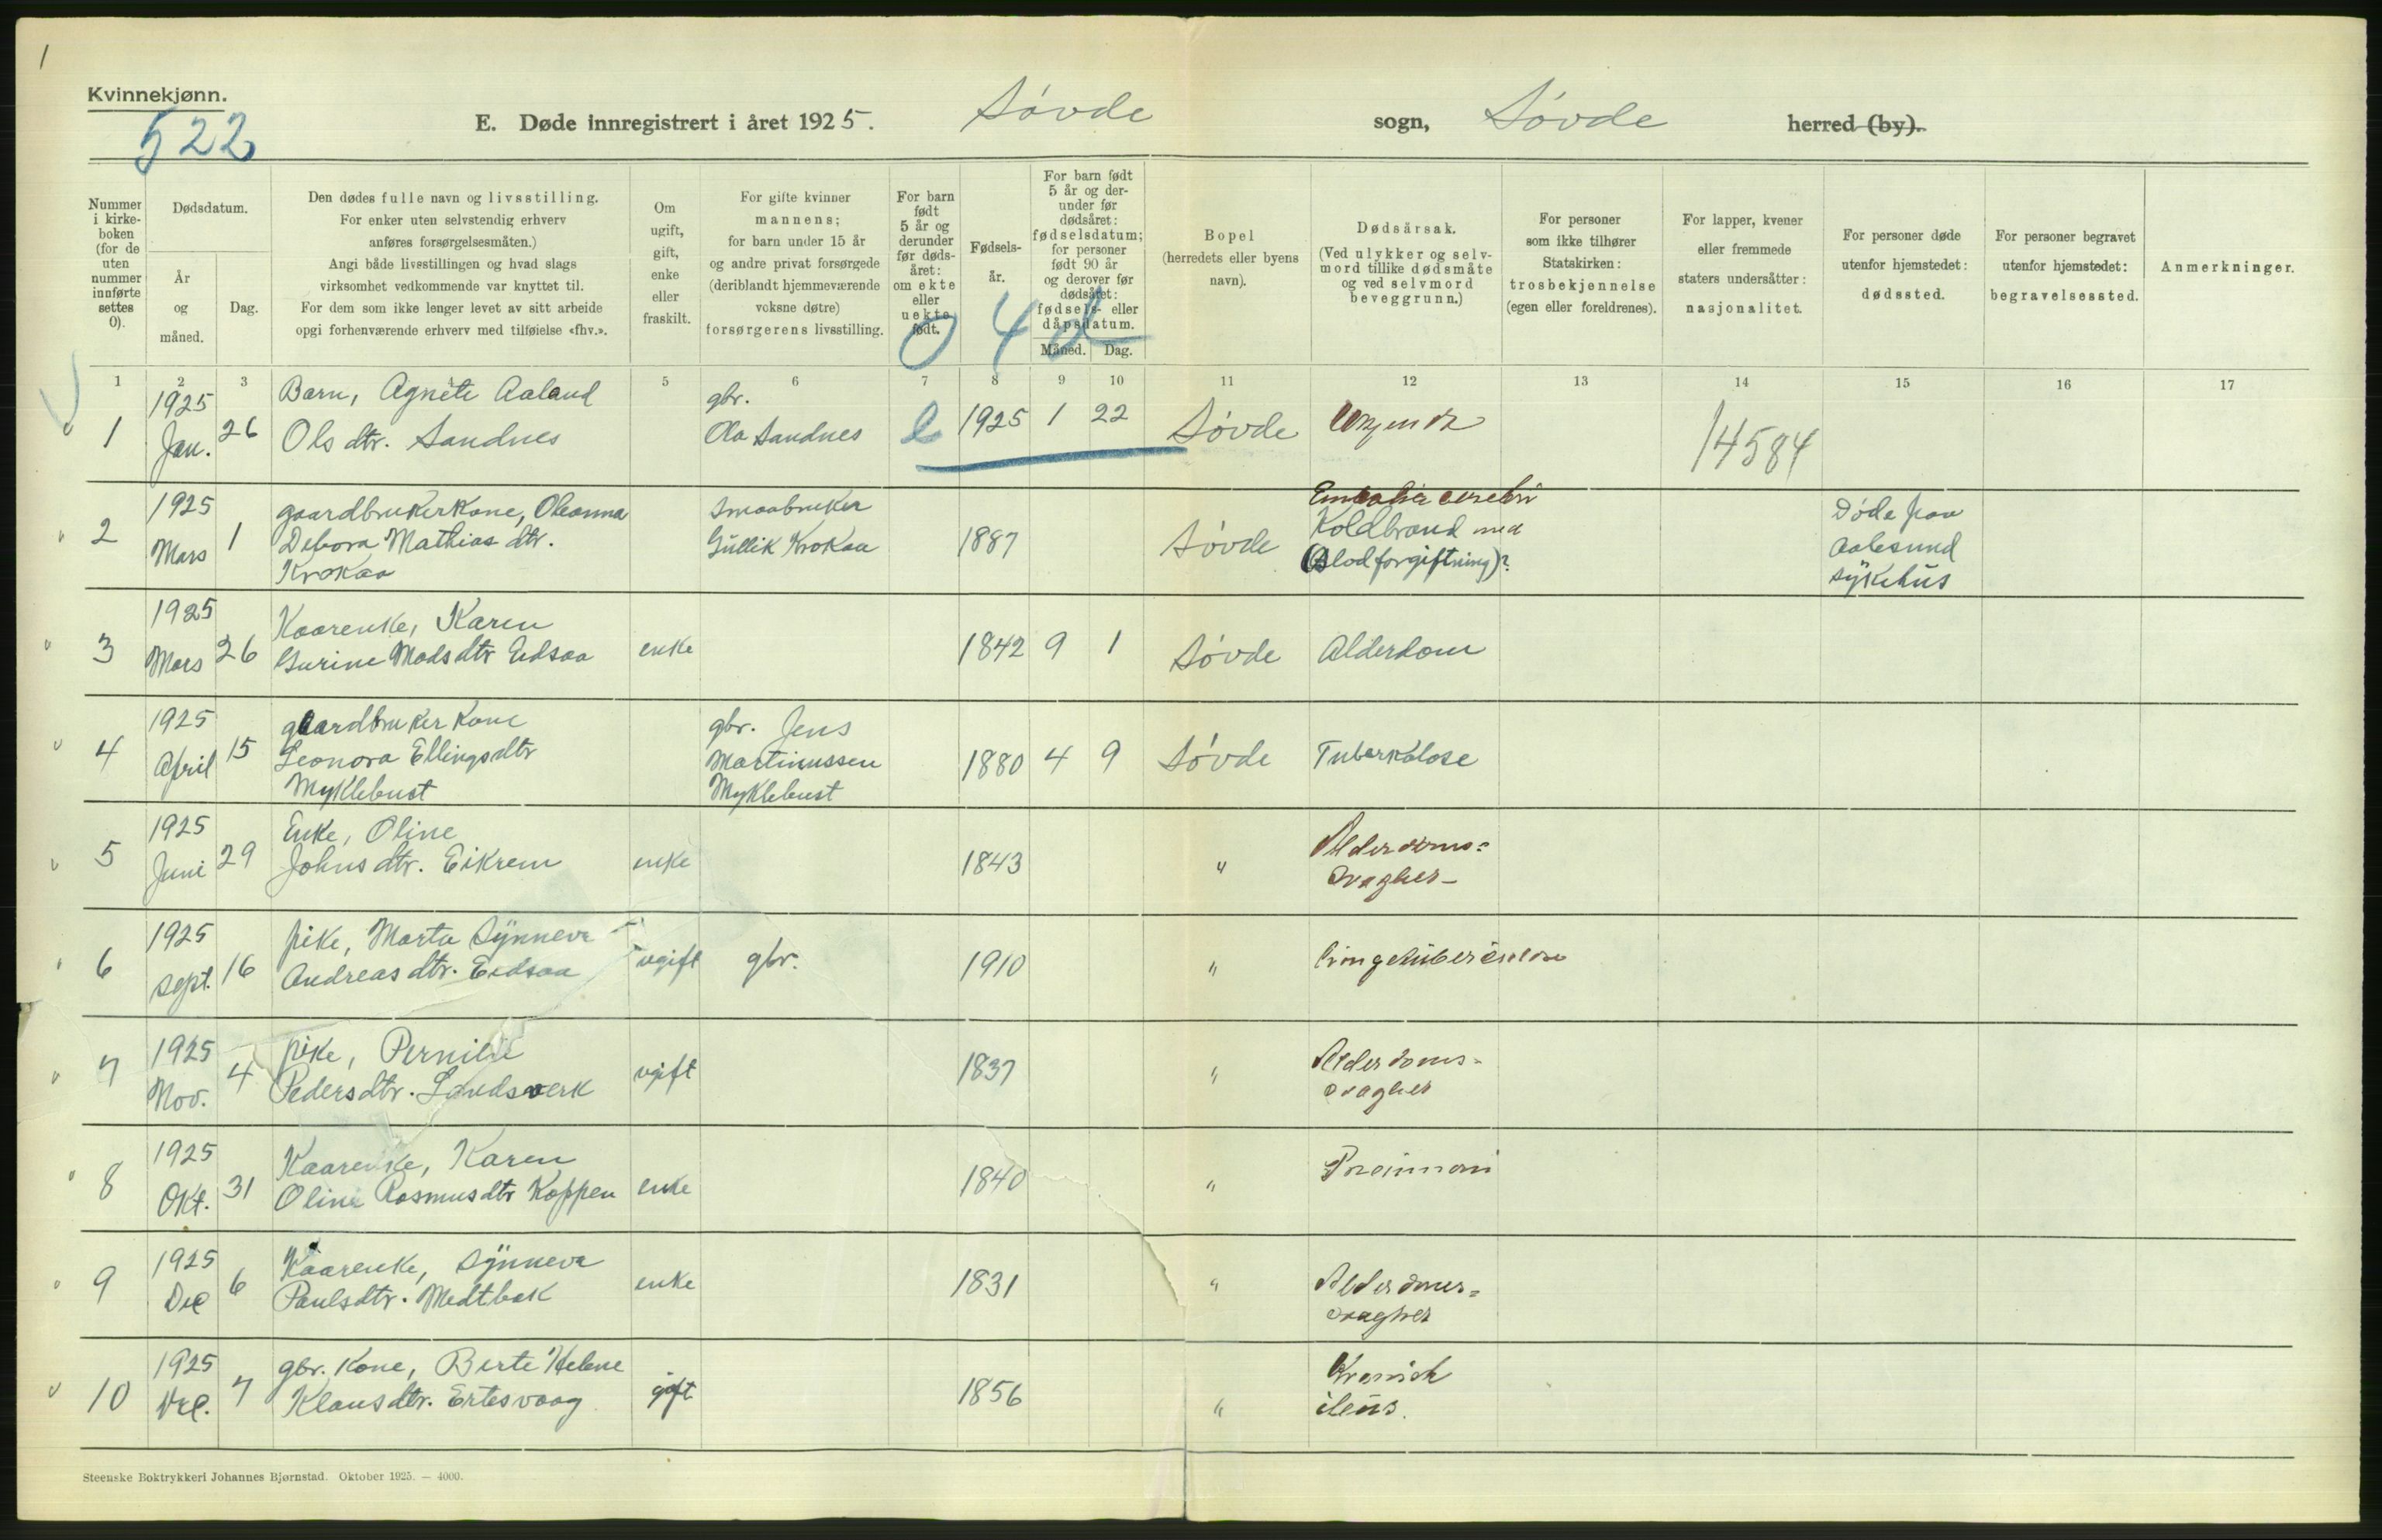 1
Kvinnekjønn.
522
E. Døde innregistrert i året 1925. Søvde sogn, Søvde herred (by).
Nummer i kirkeboken (for de uten nummer innførte settes 0).
Dødsdatum.
År og måned.
Dag.
Den dødes fulle navn og livsstilling.
For enker uten selvstendig erhverv
anføres forsørgelsesmåten.)
Angi både livsstillingen og hvad slags
virksomhet vedkommende var knyttet til.
For dem som ikke lenger levet av sitt arbeide
opgi forhenværende erhverv med tilføielse «fhv.».
Om
ugift,
gift,
enke
eller
fraskilt.
For gifte kvinner
mannens;
for barn under 15 år
og andre privat forsørgede
(deriblandt hjemmeværende
voksne døtre)
forsørgerens livsstilling.
For barn
født
5 år og
derunder
før døds-
året:
om ekte
eller
uekte
født.
Fødsels-
år.
For barn født
5 år og der-
under før
dødsåret:
fødselsdatum;
for personer
født 90 år
og derover før
dødsåret:
fødsels- eller
dåpsdatum.
Måned. Dag.
0 4 d
Bopel
(herredets eller byens
navn).
Dødsårsak.
(Ved ulykker og selv-
mord tillike dødsmåte
og ved selvmord
beveggrunn.)
For personer
som ikke tilhører
Statskirken:
trosbekjennelse
(egen eller foreldrenes).
For lapper, kvener
eller fremmede
staters undersåtter:
nasjonalitet.
For personer døde
utenfor hjemstedet:
dødssted.
For personer begravet
utenfor hjemstedet:
begravelsessted.
Anmerkninger.
1 2 3 4 5 6 7 8 9 10 11 12 13 14 15 16 17
1 1925 Jan. 26 Barn, Agnete Aaland
Ols dtr. Sandnes
gbr.
Ola Sandnes
e 1925 1 22 Søvde
14584
2 1925 Mars 1 gaardbrukerkone, Oleanna
Debora Mathias dtr.
Krokaa
Smaabruker
Gullik Krokaa
1887 Søvde
cerebri
Koldbrand med
(Blodforgiftning)?
Døde paa
Aalesund
sykehus
3 1925 Mars 26 Kaarenke, Karen
Gurine Madsdtr Eidsaa
enke 1842 9 1 Søvde Alderdom
4 1925 April 15 gaardbrukerkone
Leonora Ellingsdtr
Myklebust
gbr. Jens
Martinussen
Myklebust
1880 4 9 Søvde Tuberkulose
5 1925 Juni 29 Enke, Oline
Johnsdtr. Eikrem
enke 1843 "
Alderdoms=
svaghet
6 1925 Sept. 16 pike, Marta Synneva
Andreasdtr. Eidsaa
ugift gbr. 1910 " Lungetuberculose
7 1925 Nov. 4 pike, Pernille
Pedersdtr. Landsverk
ugift 1837 "
Alderdoms=
svaghet
8 1925 Okt. 31 Kaarenke, Karen
Oline Rasmusdtr Koppen
enke 1840 "
9 1925 Dec 6 Kaarenke, Synneva
Paulsdtr. Medtbak
enke 1831 "
Alderdoms=
svaghet
10 1925 Dec. 7 gbr. kone, Berte Helene
Klausdtr. Ertesvaag
gift 1856 "
Kronisk
ileus.
Steenske Boktrykkeri Johannes Bjørnstad. Oktober 1925. — 4000.